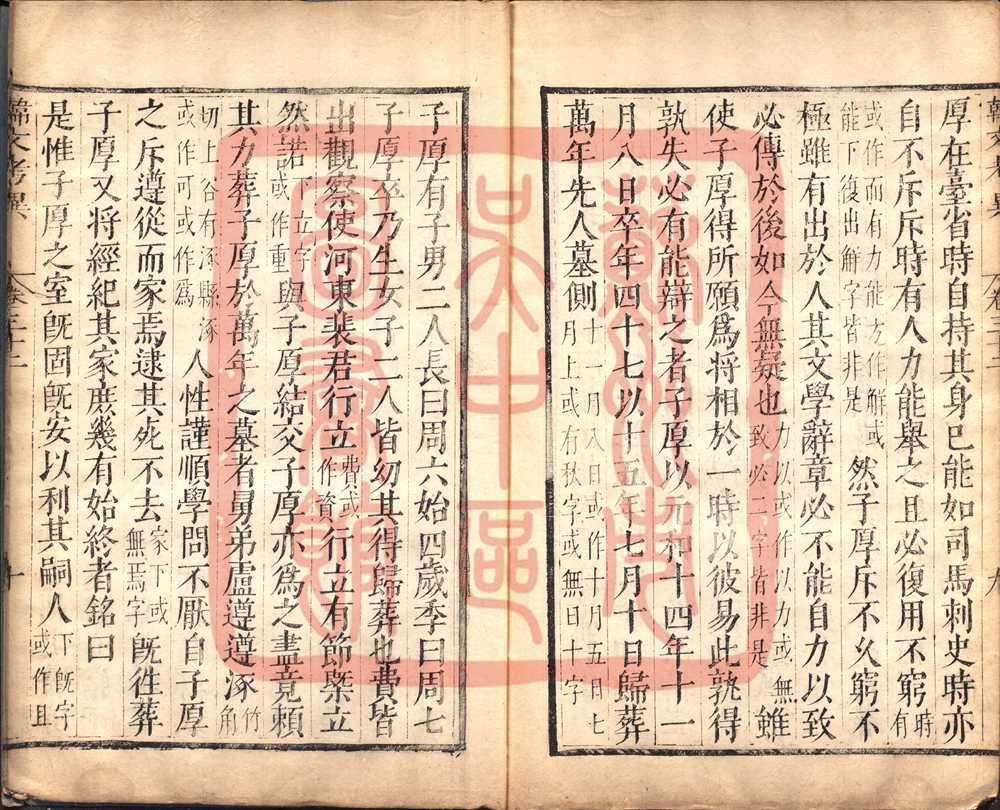 厚在臺省時自持其身已能如司馬刺史時亦
自不斥斥時有人力能舉之且必復用不窮時有
或作而有力能方作解或能下復出解字皆非是然子厚斥不久窮不
極雖有出於人其文學辭章必不能自力以致
必傳於後如今無疑也力以或作以力或無致必二字皆非是雖
使子厚得所願爲將相於一時以彼易此孰得
孰失必有能辯之者子厚以元和十四年十一
月八日卒年四十七以十五年七月十日歸葬
萬年先人墓側十一月八日或作十月五日七月上或有秋字或無日十字
子厚有子男二人長曰周六始四歲季曰周七
子厚卒乃生女子二人皆幼其得歸葬也費皆
出觀察使河東裴君行立費或作資行立有節槩立
然諾或下立字作重與子厚結交子厚亦爲之盡竟賴
其力葬子厚於萬年之墓者舅弟盧遵遵涿竹角
切上谷有涿縣涿或作可或作爲人性謹順學問不厭自子厚
之斥遵從而家焉逮其死不去家下或無焉字旣徃葬
子厚又將經紀其家庶幾有始終者銘曰
是惟子厚之室旣固旣安以利其嗣人下旣字或作且
韓文考異 卷三十二 十